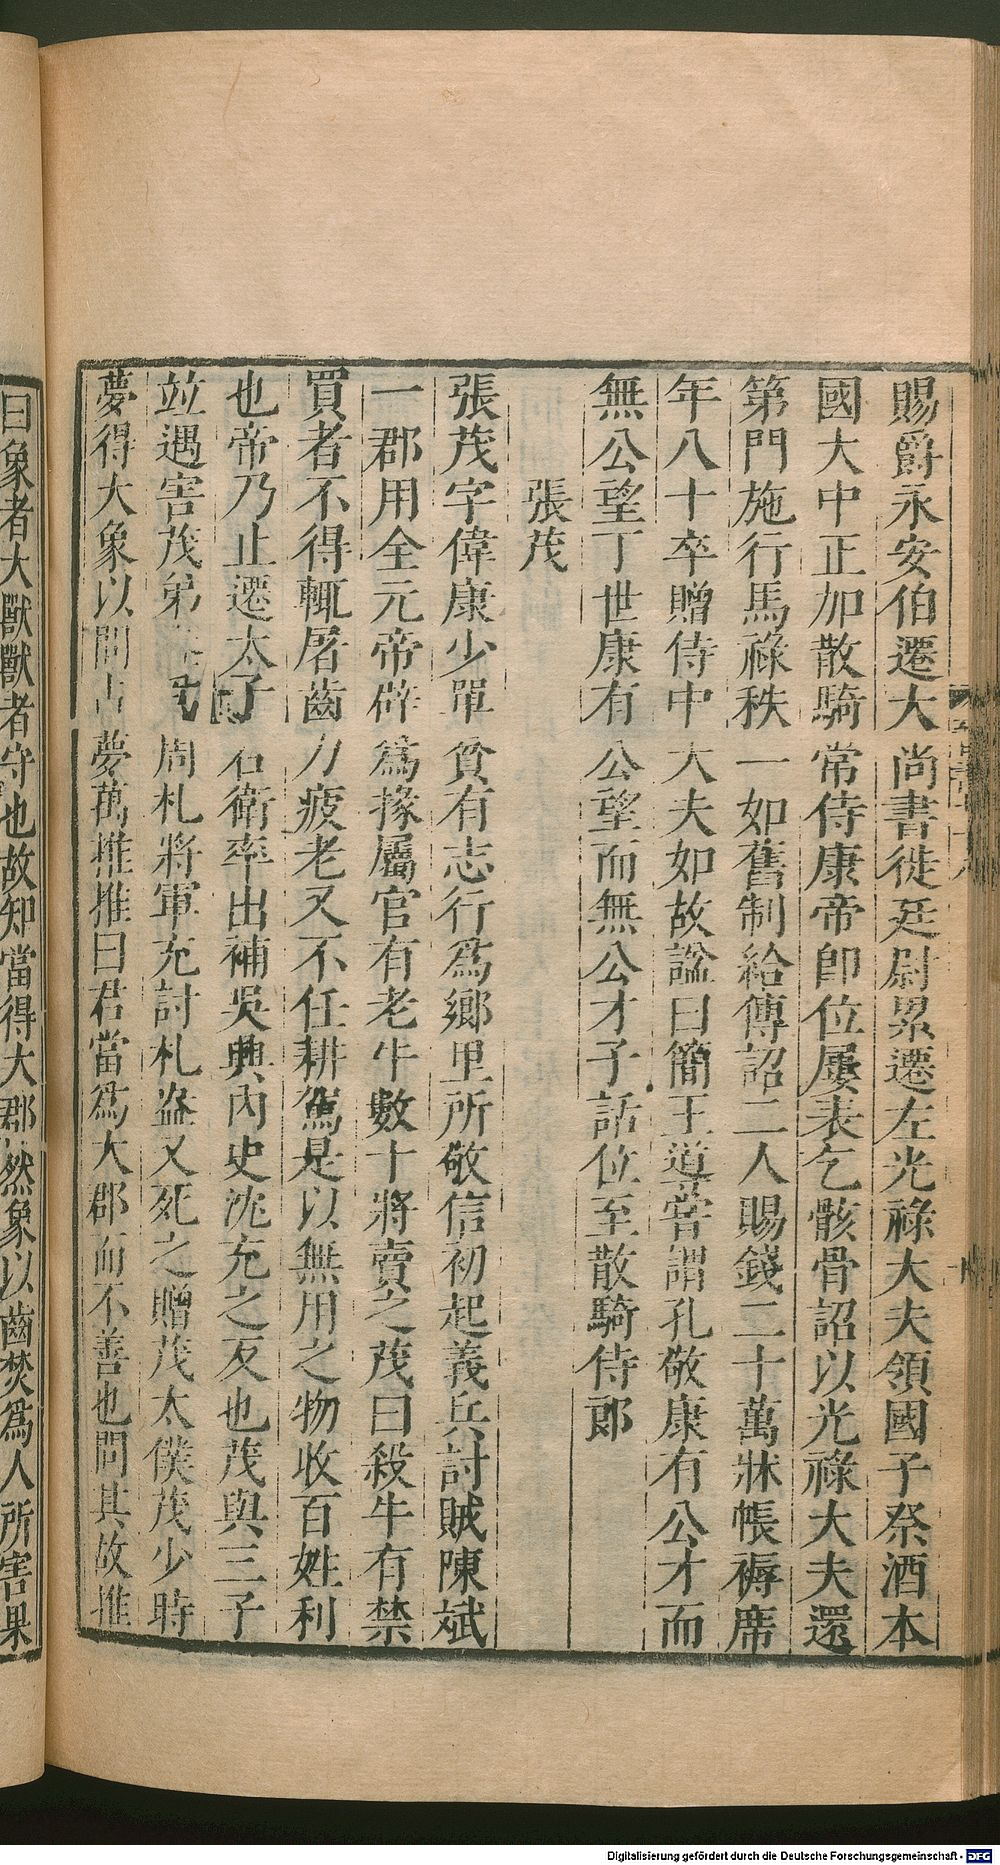 賜爵永安伯遷大尚書徙廷尉累遷左光祿大夫領國子祭酒本
國大中正加散騎常侍康帝卽位屢表乞骸骨詔以光祿大夫還
第門施行馬祿秩一如舊制給傳詔二人賜錢二十萬牀帳褥席
年八十卒贈侍中大夫如故諡曰簡王導嘗謂孔敬康有公才而
無公望丁世康有公望而無公才子話位至散騎侍郞
張茂
張茂字偉康少單貧有志行爲鄉里所敬信初起義兵討賊陳斌
一郡用全元帝辟爲掾屬官有老牛數十將賣之茂曰殺牛有禁
買者不得輒屠齒力疲老又不任耕駕是以無用之物收百姓利
也帝乃止遷太子右衛率出補吳興內史沈充之反也茂與三子
竝遇害茂弟盎周札將軍充討札盎又死之贈茂太僕茂少時
夢得大象以問占夢萬推推曰君當爲大郡而不善也問其故推
曰象者大獸獸者守也故知當得大郡然象以齒焚爲人所害果
Digitalisierung gefördert durch die Deutsche Forschungsgemeinschaft - DFG